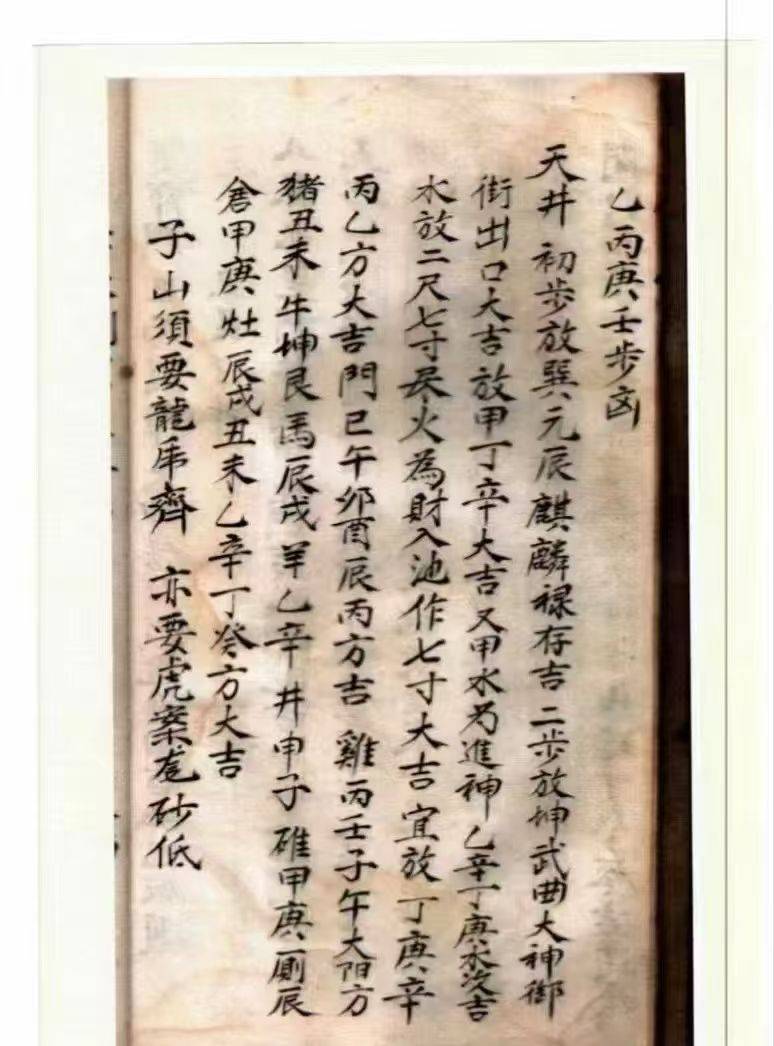 乙丙庚壬步凶
天井 初步放巽元辰麒麟禄存吉 二步放坤武曲大神御
街出口大吉放甲丁辛大吉又甲水为進神乙辛丁庚水次吉
水放二尺七寸艮火為財入池作七寸大吉宜放丁庚辛
丙乙方大吉門巳午卯酉辰丙方吉 雞丙壬子午大阳方
猪丑未牛坤艮馬辰戌羊乙辛井申子碓甲庚厠辰
倉甲庚灶辰戌丑未乙辛丁癸方大吉
子山須要龍虎齊 亦要虎案龙砂低